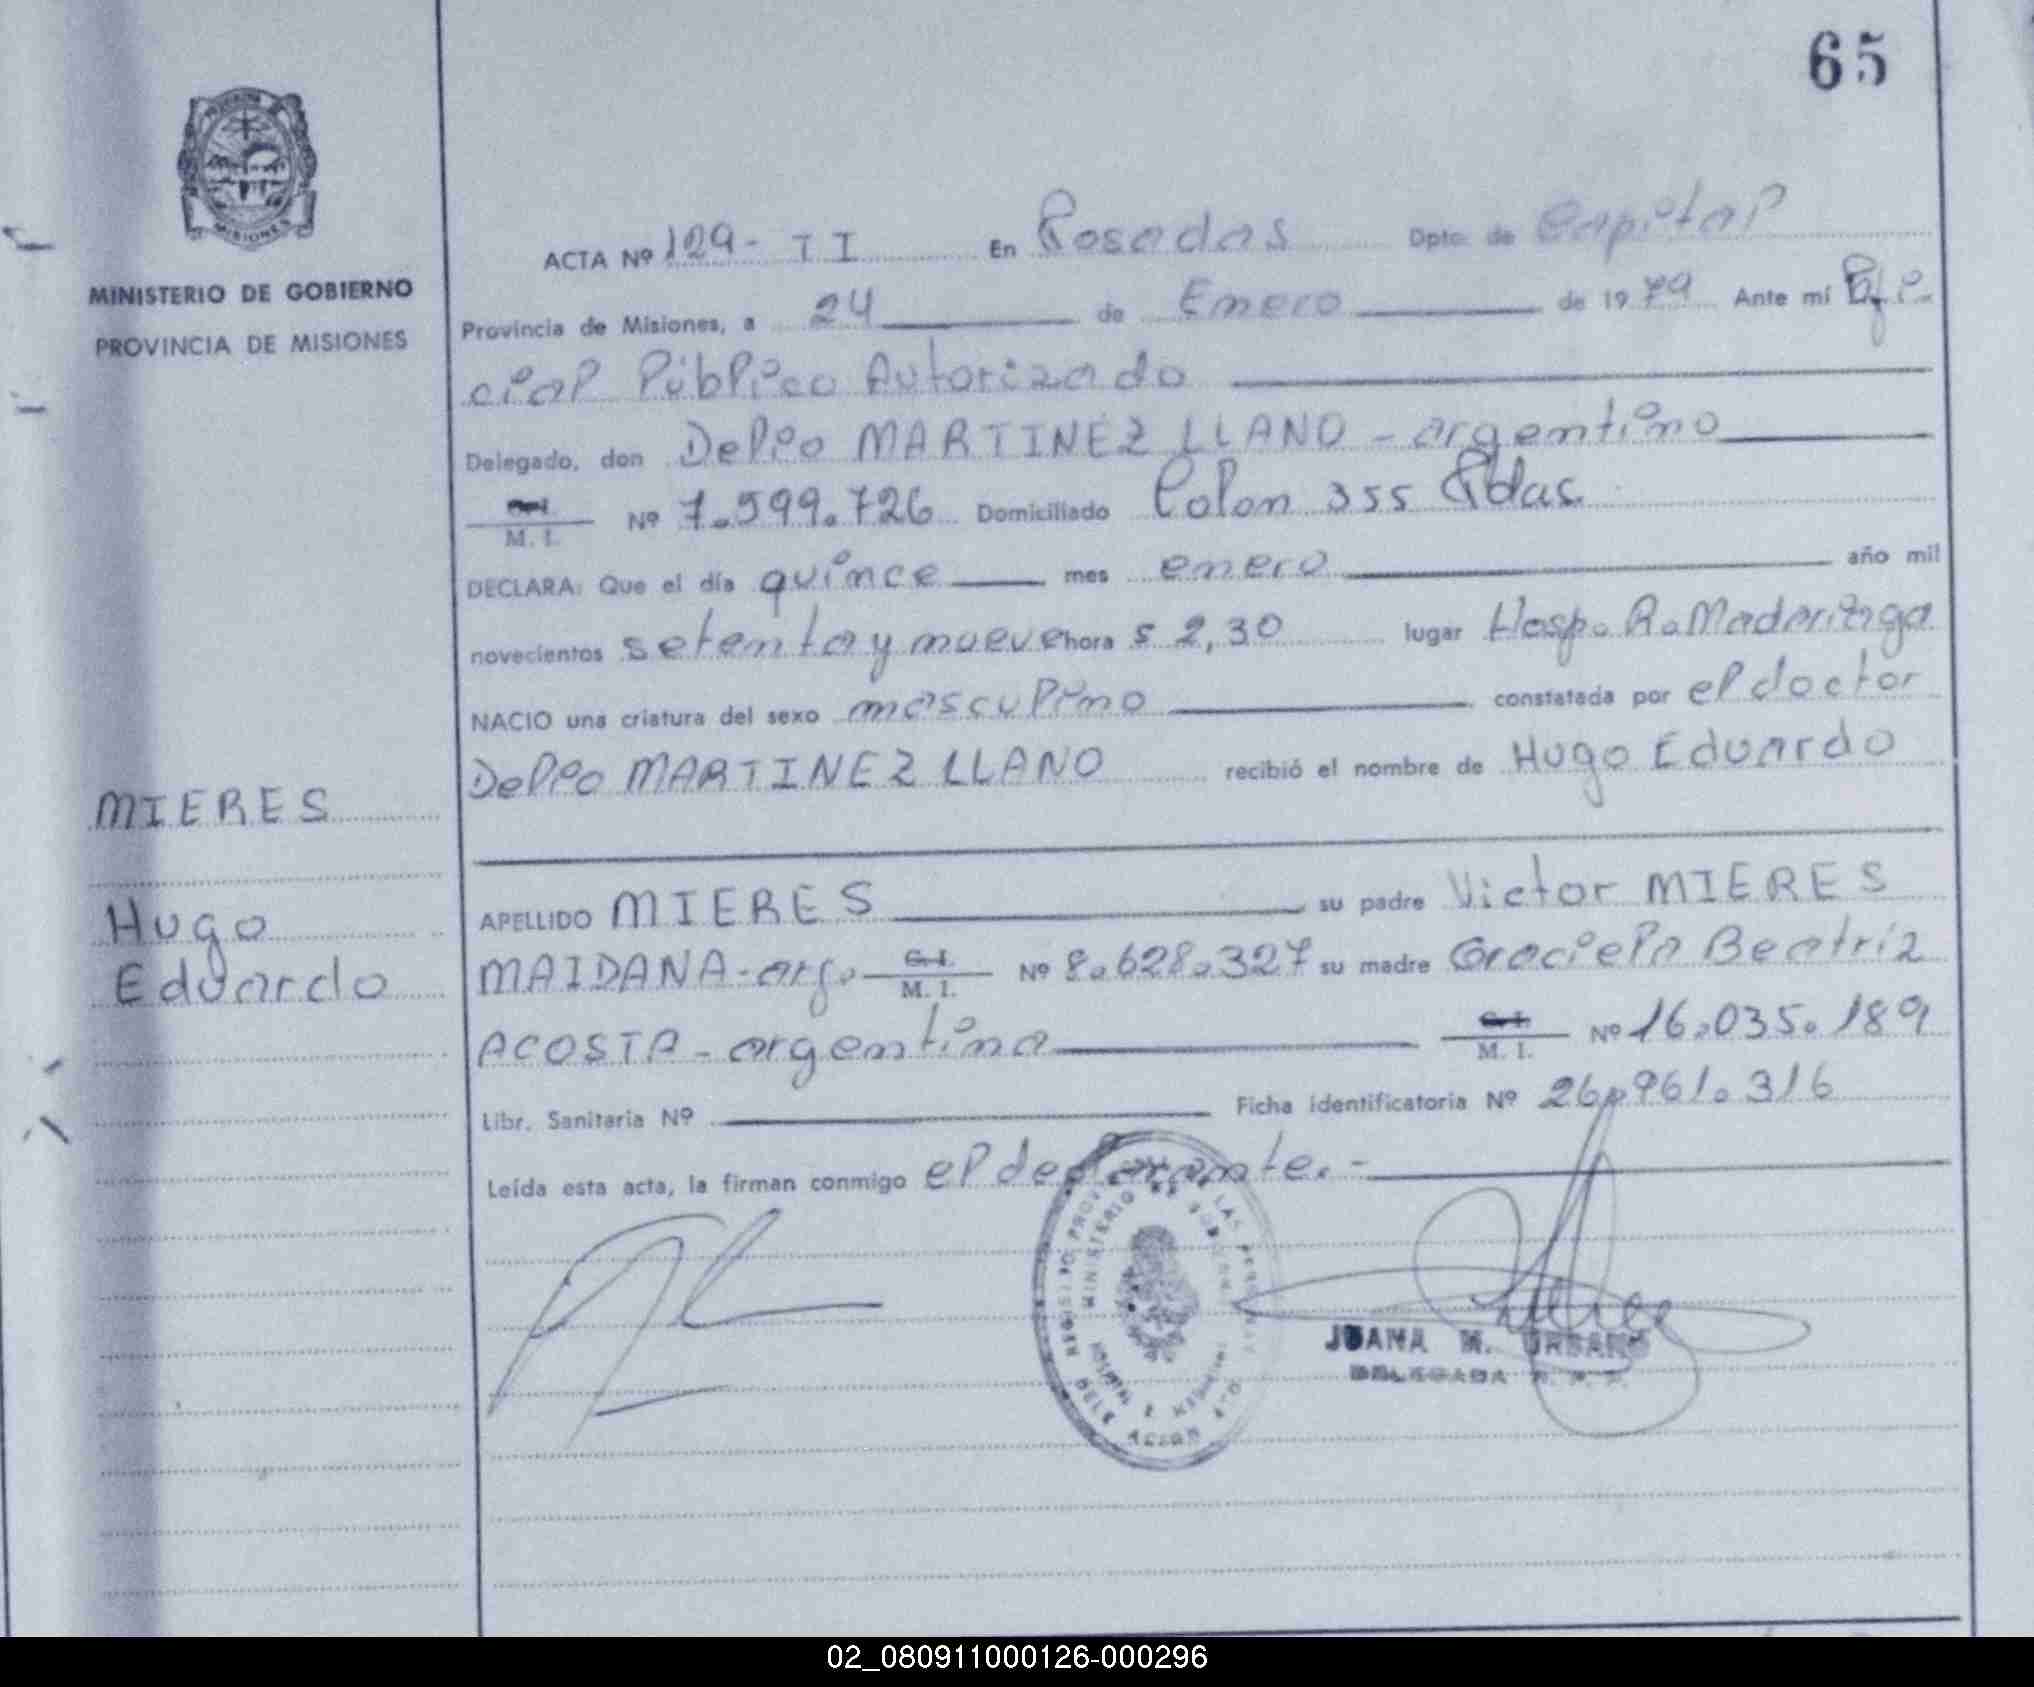 65
MINISTERIO DE GOBIERNO
PROVINCIA DE MISIONES
ACTA Nº 129- II En Posadas Dpto. de Capital
Provincia de Misiones, a 24 de Enero de 1979 Ante mí Ofi-
cial Público Autorizado
Delegado, don Delio MARTINEZ LLANO - argentino
C.I.
M. I. Nº 7.599.726 Domiciliado Colon 355 Pdas.
DECLARA: Que el día quince mes enero año mil
novecientos setenta y nueve hora s 2,30 lugar Hosp. R. Madariaga
NACIO una criatura del sexo masculino constatada por el doctor
Delio MARTINEZ LLANO recibió el nombre de Hugo Eduardo
MIERES
Hugo
Eduardo
APELLIDO MIERES su padre Victor MIERES
MAIDANA - arg. C.I. M. I. Nº 8.628.327 su madre Graciela Beatriz
ACOSTA - argentina C.I. M. I. Nº 16.035.189
Libr. Sanitaria Nº Ficha identificatoria Nº 26.961.316
Leída esta acta, la firman conmigo el declarante.-
MINISTERIO
LAS PERSONAS
JUANA M. URBANO
DELEGADA
02_080911000126-000296